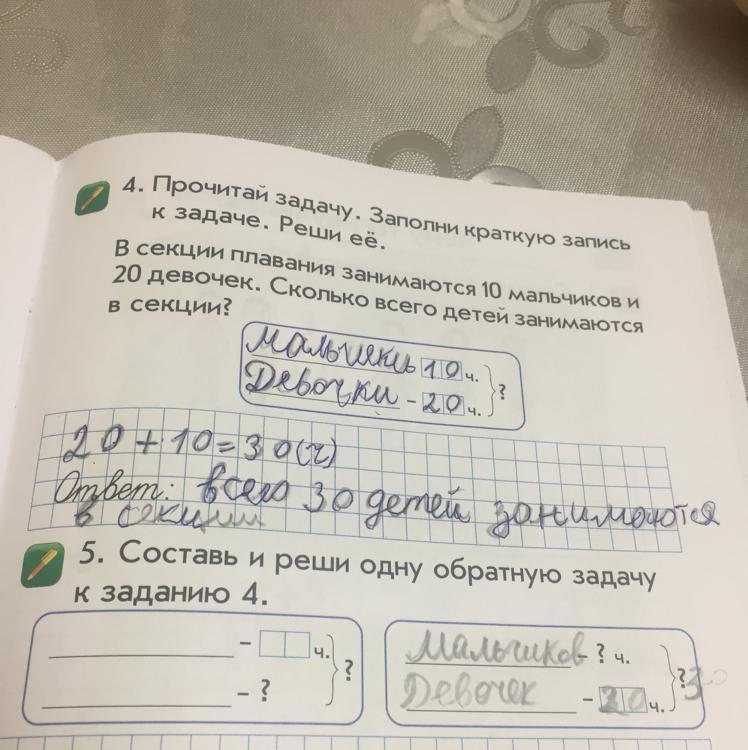 4. Прочитай задачу. Заполни краткую запись
к задаче. Реши её.
В секции плавания занимаются 10 мальчиков и
20 девочек. Сколько всего детей занимаются
в секции?
Мальчики 10 ч.
Девочки - 20 ч.
?
20+10=30(ч)
Ответ: всего 30 детей занимаются
в секции
5. Составь и реши одну обратную задачу
к заданию 4.
- ч.
- ?
?
Мальчиков - ? ч.
Девочек - 20 ч.
? 30